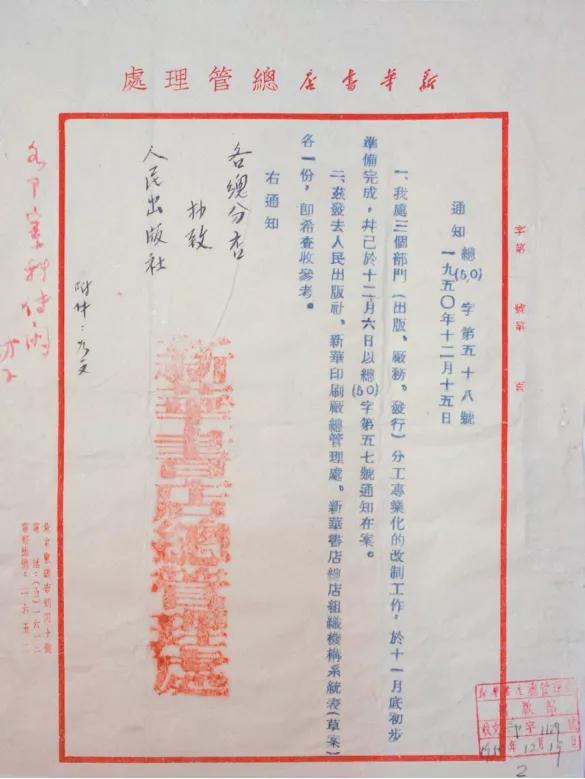 新華書店總管理處
字第　號第　頁
通知
總(50)字第五十八號
一九五〇年十二月十五日
一、我處三個部門(出版、廠務、發行)分工專業化的改制工作，於十一月底初步
準備完成，幷已於十二月六日以總(50)字第五七號通知在案。
二、茲發去人民出版社、新華印刷廠總管理處、新華書店總店組織機構系統表(草案)
各一份，即希查收參考。
右通知
各總分店
抄致
人民出版社
附件：如文
新華書店總管理處
收文
字
1950年12月19日
2